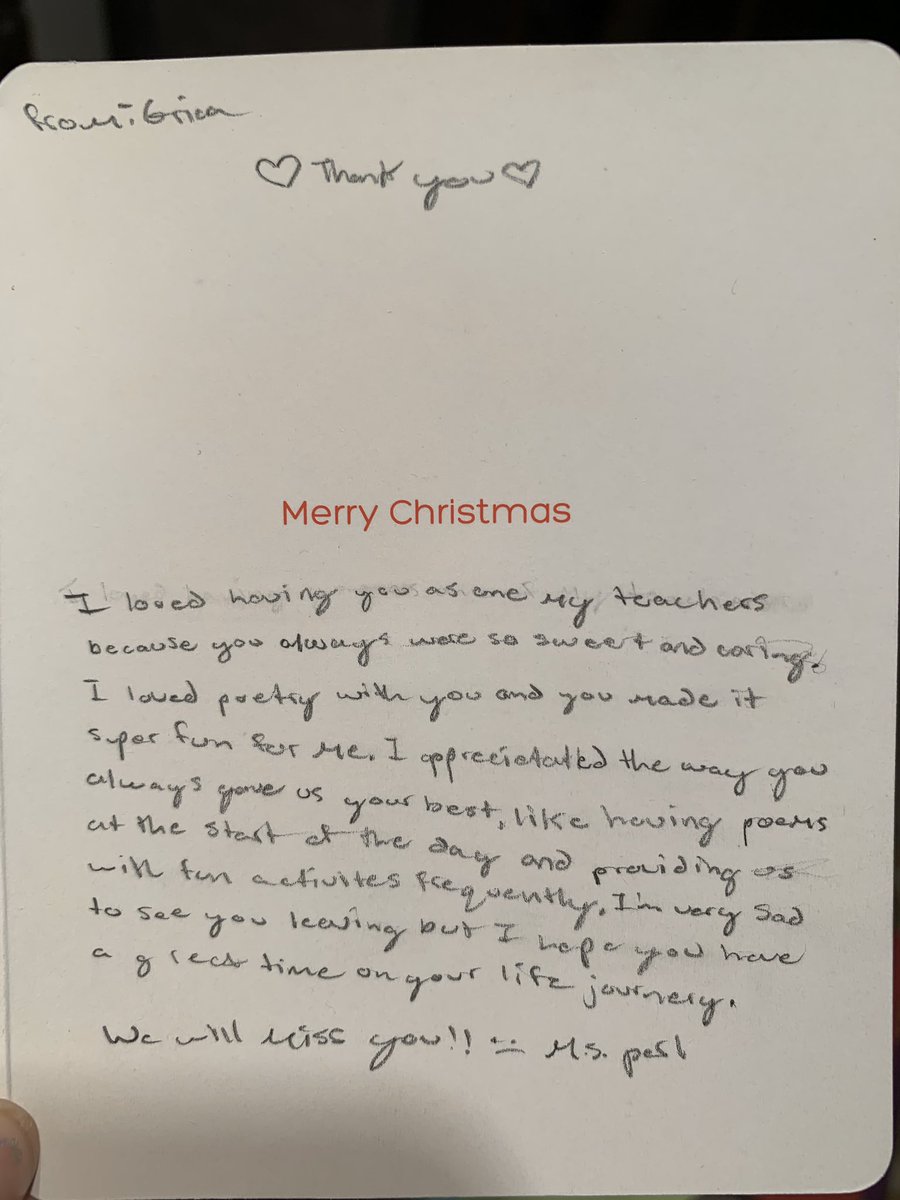 From: Erica
♡ Thank you ♡
Merry Christmas
I loved having you as one my teachers
because you always were so sweet and caring.
I loved poetry with you and you made it
super fun for me. I appreciatated the way you
always gave us your best, like having poems
at the start of the day and providing us
with fun activites frequently. I'm very sad
to see you leaving but I hope you have
a great time on your life journery.
We will miss you!! Ms.